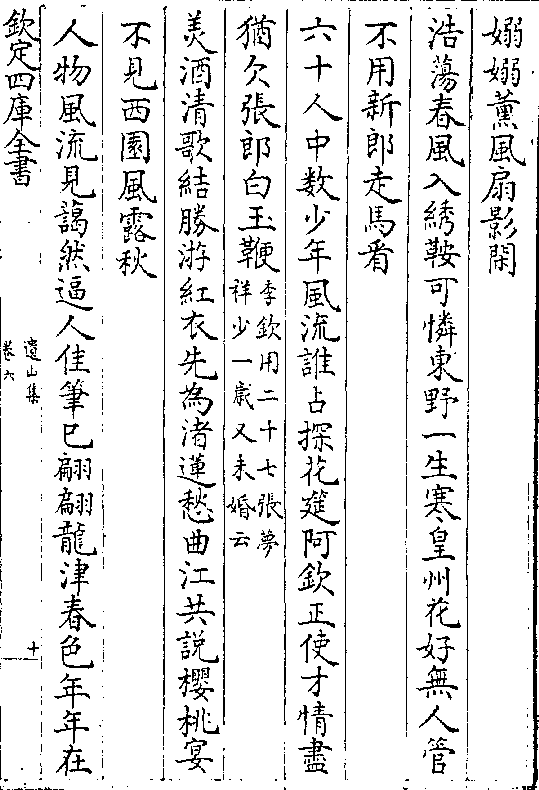 嫋嫋薰風扇影閑
浩蕩春風入綉鞍可憐東野一生寒皇州花好無人管
不用新郎走馬看
六十人中数少年風流誰占探花筵阿欽正使才情盡
猶欠張郎白玉鞭李欽用二十七張夢
祥少一歳又未婚云
美酒清歌結勝游紅衣先為渚蓮愁曲江共說櫻桃宴
不見西園風露秋
人物風流見藹然逼人佳筆已翩翩龍津春色年年在
欽定四庫全書
遺山集
卷六
十